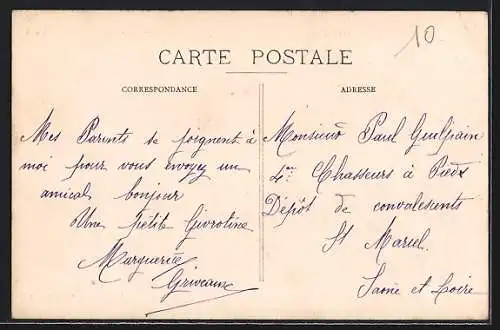 10
CARTE POSTALE
CORRESPONDANCE
Mes Parents se joignent à
moi pour vous envoyez un
amical bonjour
Une petite Givrotine
Marguerite
Griveaux
ADRESSE
Monsieur Paul
4me Chasseurs à Pieds
Dépôt de convalescents
St Marcel
Saône et Loire